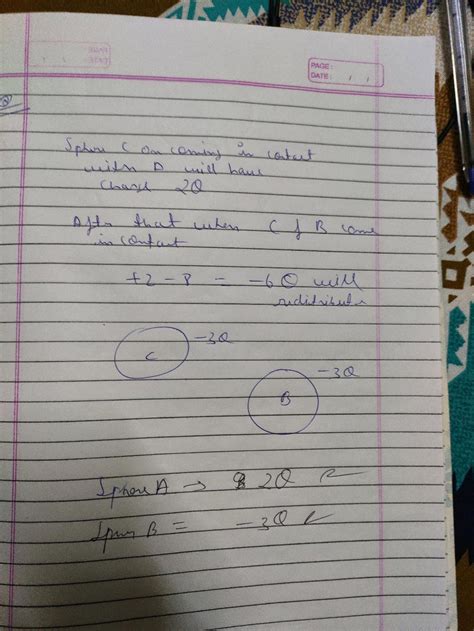 PAGE :
DATE :
Sphere C on coming in contact
with A will have
charge 2Q
After that when C & B come
in contact
+2 - 8 = -6Q will
redistribute
-3Q
C
-3Q
B
Sphere A → 2Q
B = -3Q